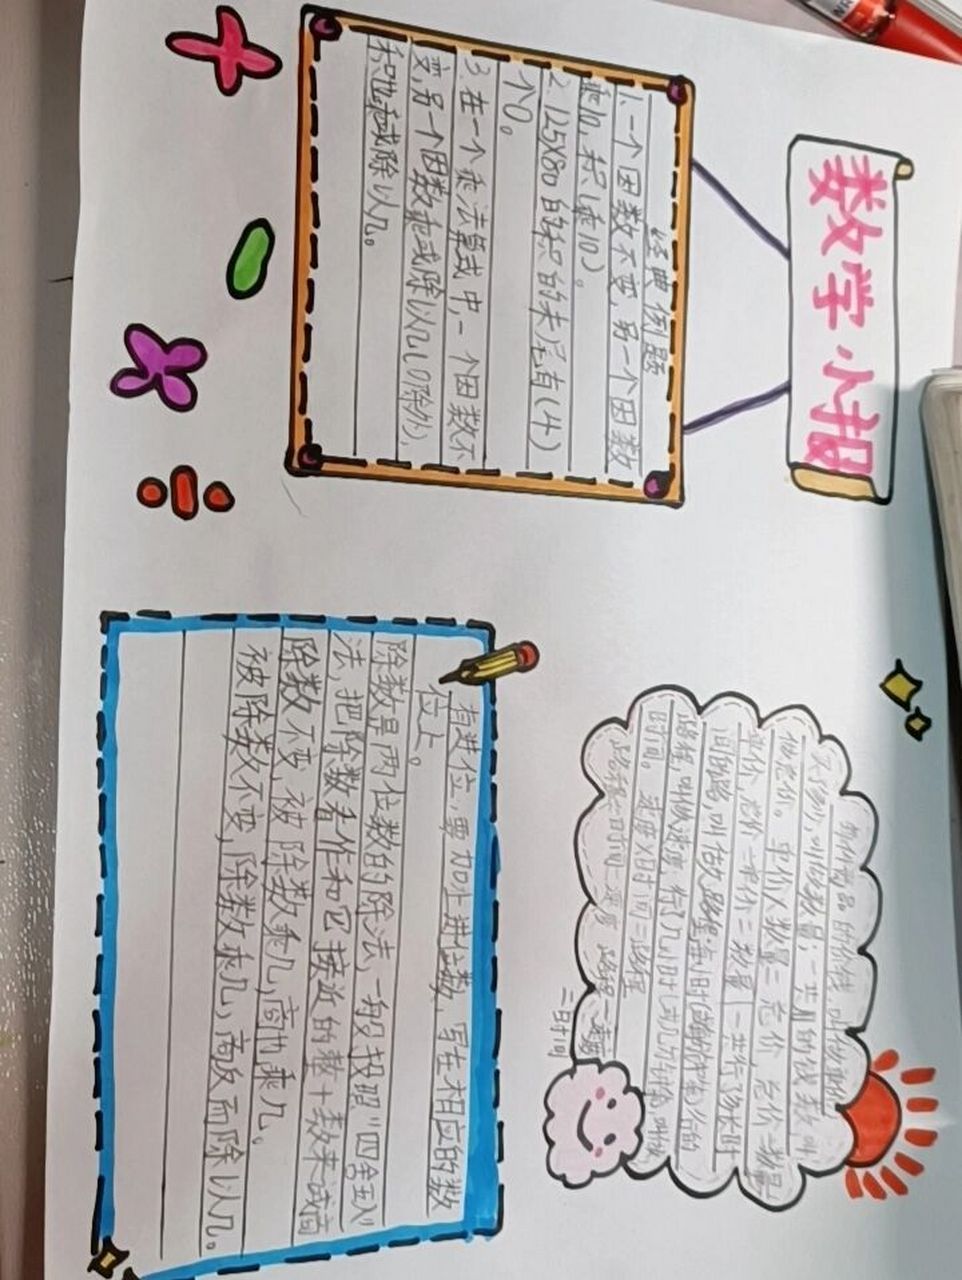 数学小报
经典例题
1、一个因数不变,另一个因数
乘10,积(乘10)。
2、125×80的积的末尾有(4)
个0。
3、在一个乘法算式中,一个因数不
变,另一个因数乘或除以几(0除外),
积也乘或除以几。
每件商品的价钱,叫做
叫做数量;一共用的钱数,叫
做总价。单价×数量=总价 总价÷数量
=单价 总价÷单价=数量 一共行了多长
的路,叫做路程;每小时
路程,叫做速度;行了几小时
时间。速度×时间=路程
路程÷时间=速度 路程÷速度
=时间
有进位,要加上进位数,写在相应的数
位上。
除数是两位数的除法,一般按照"四舍五入"
法,把除数看作和它接近的整十数来试商
除数不变,被除数乘几,商也乘几。
被除数不变,除数乘几,商反而除以几。